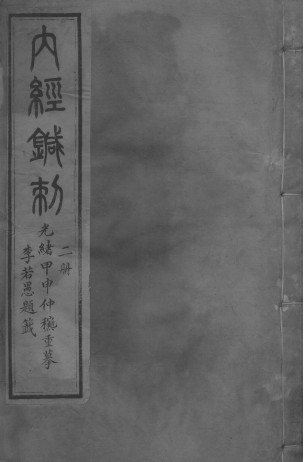 內經鍼刺
光緒甲申仲穐重摹
李若愚題籤
二册